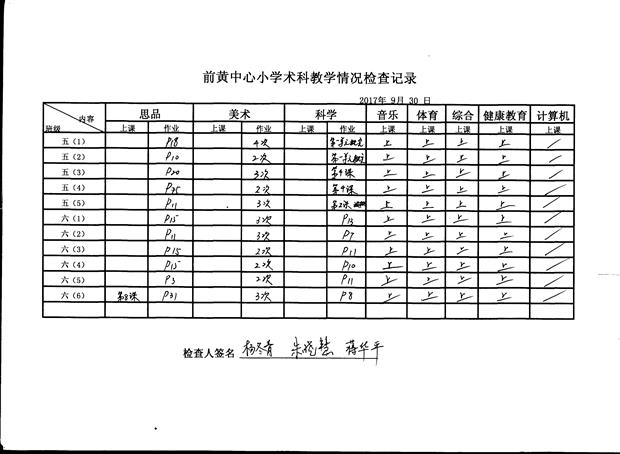 前黄中心小学术科教学情况检查记录
2017年 9月 30 日
内容 思品 美术 科学 音乐 体育 综合 健康教育 计算机
班级 上课 作业 上课 作业 上课 作业 上课 上课 上课 上课 上课
五（1） P18 4次 上 上 上 上 /
五（2） P10 2次 上 上 上 上 /
五（3） P20 3次 第4课 上 上 上 上 /
五（4） P25 2次 第4课 上 上 上 上 /
五（5） P11 3次 第2课 上 上 上 上 /
六（1） P15 3次 P13 上 上 上 上 /
六（2） P11 3次 P7 上 上 上 上 /
六（3） P15 2次 P11 上 上 上 上 /
六（4） P15 2次 P10 上 上 上 上 /
六（5） P3 2次 P11 上 上 上 上 /
六（6） 第8课 P31 3次 P8 上 上 上 上 /
检查人签名 杨冬青 朱晓慧 蒋华平